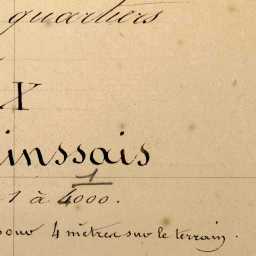 quartiers
X
inssais
1
1 à 4000.
pour 4 mètres sur le terrain.